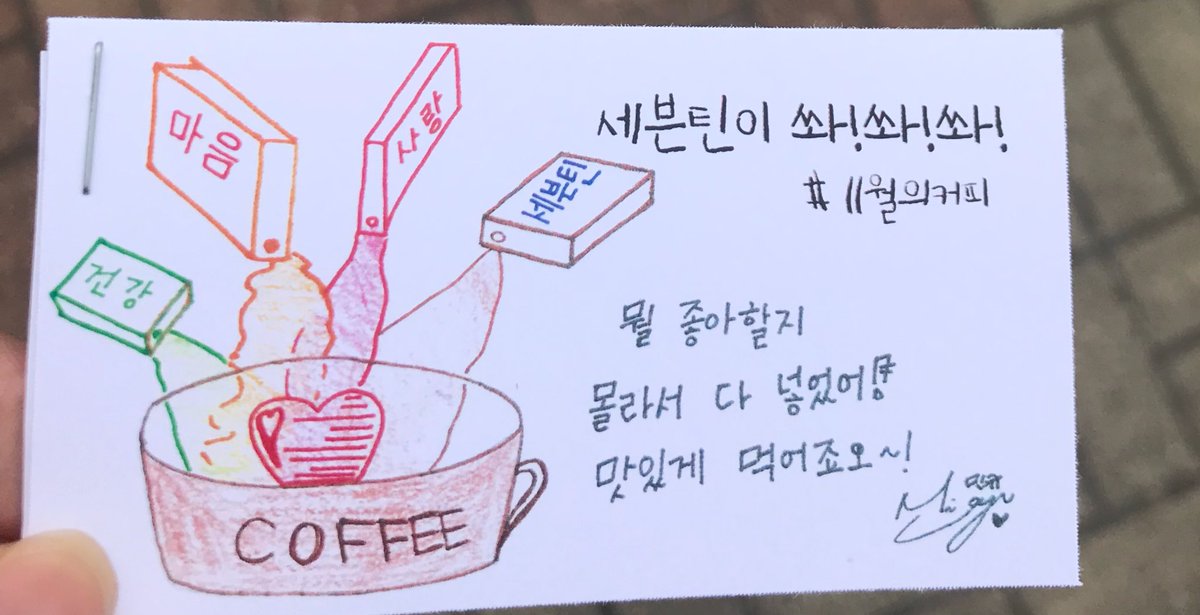 마음
사랑
세븐틴
건강
COFFEE
세븐틴이 쏴!쏴!쏴!
#11월의커피
뭘 좋아할지
몰라서 다 넣었어!
맛있게 먹어죠오~!